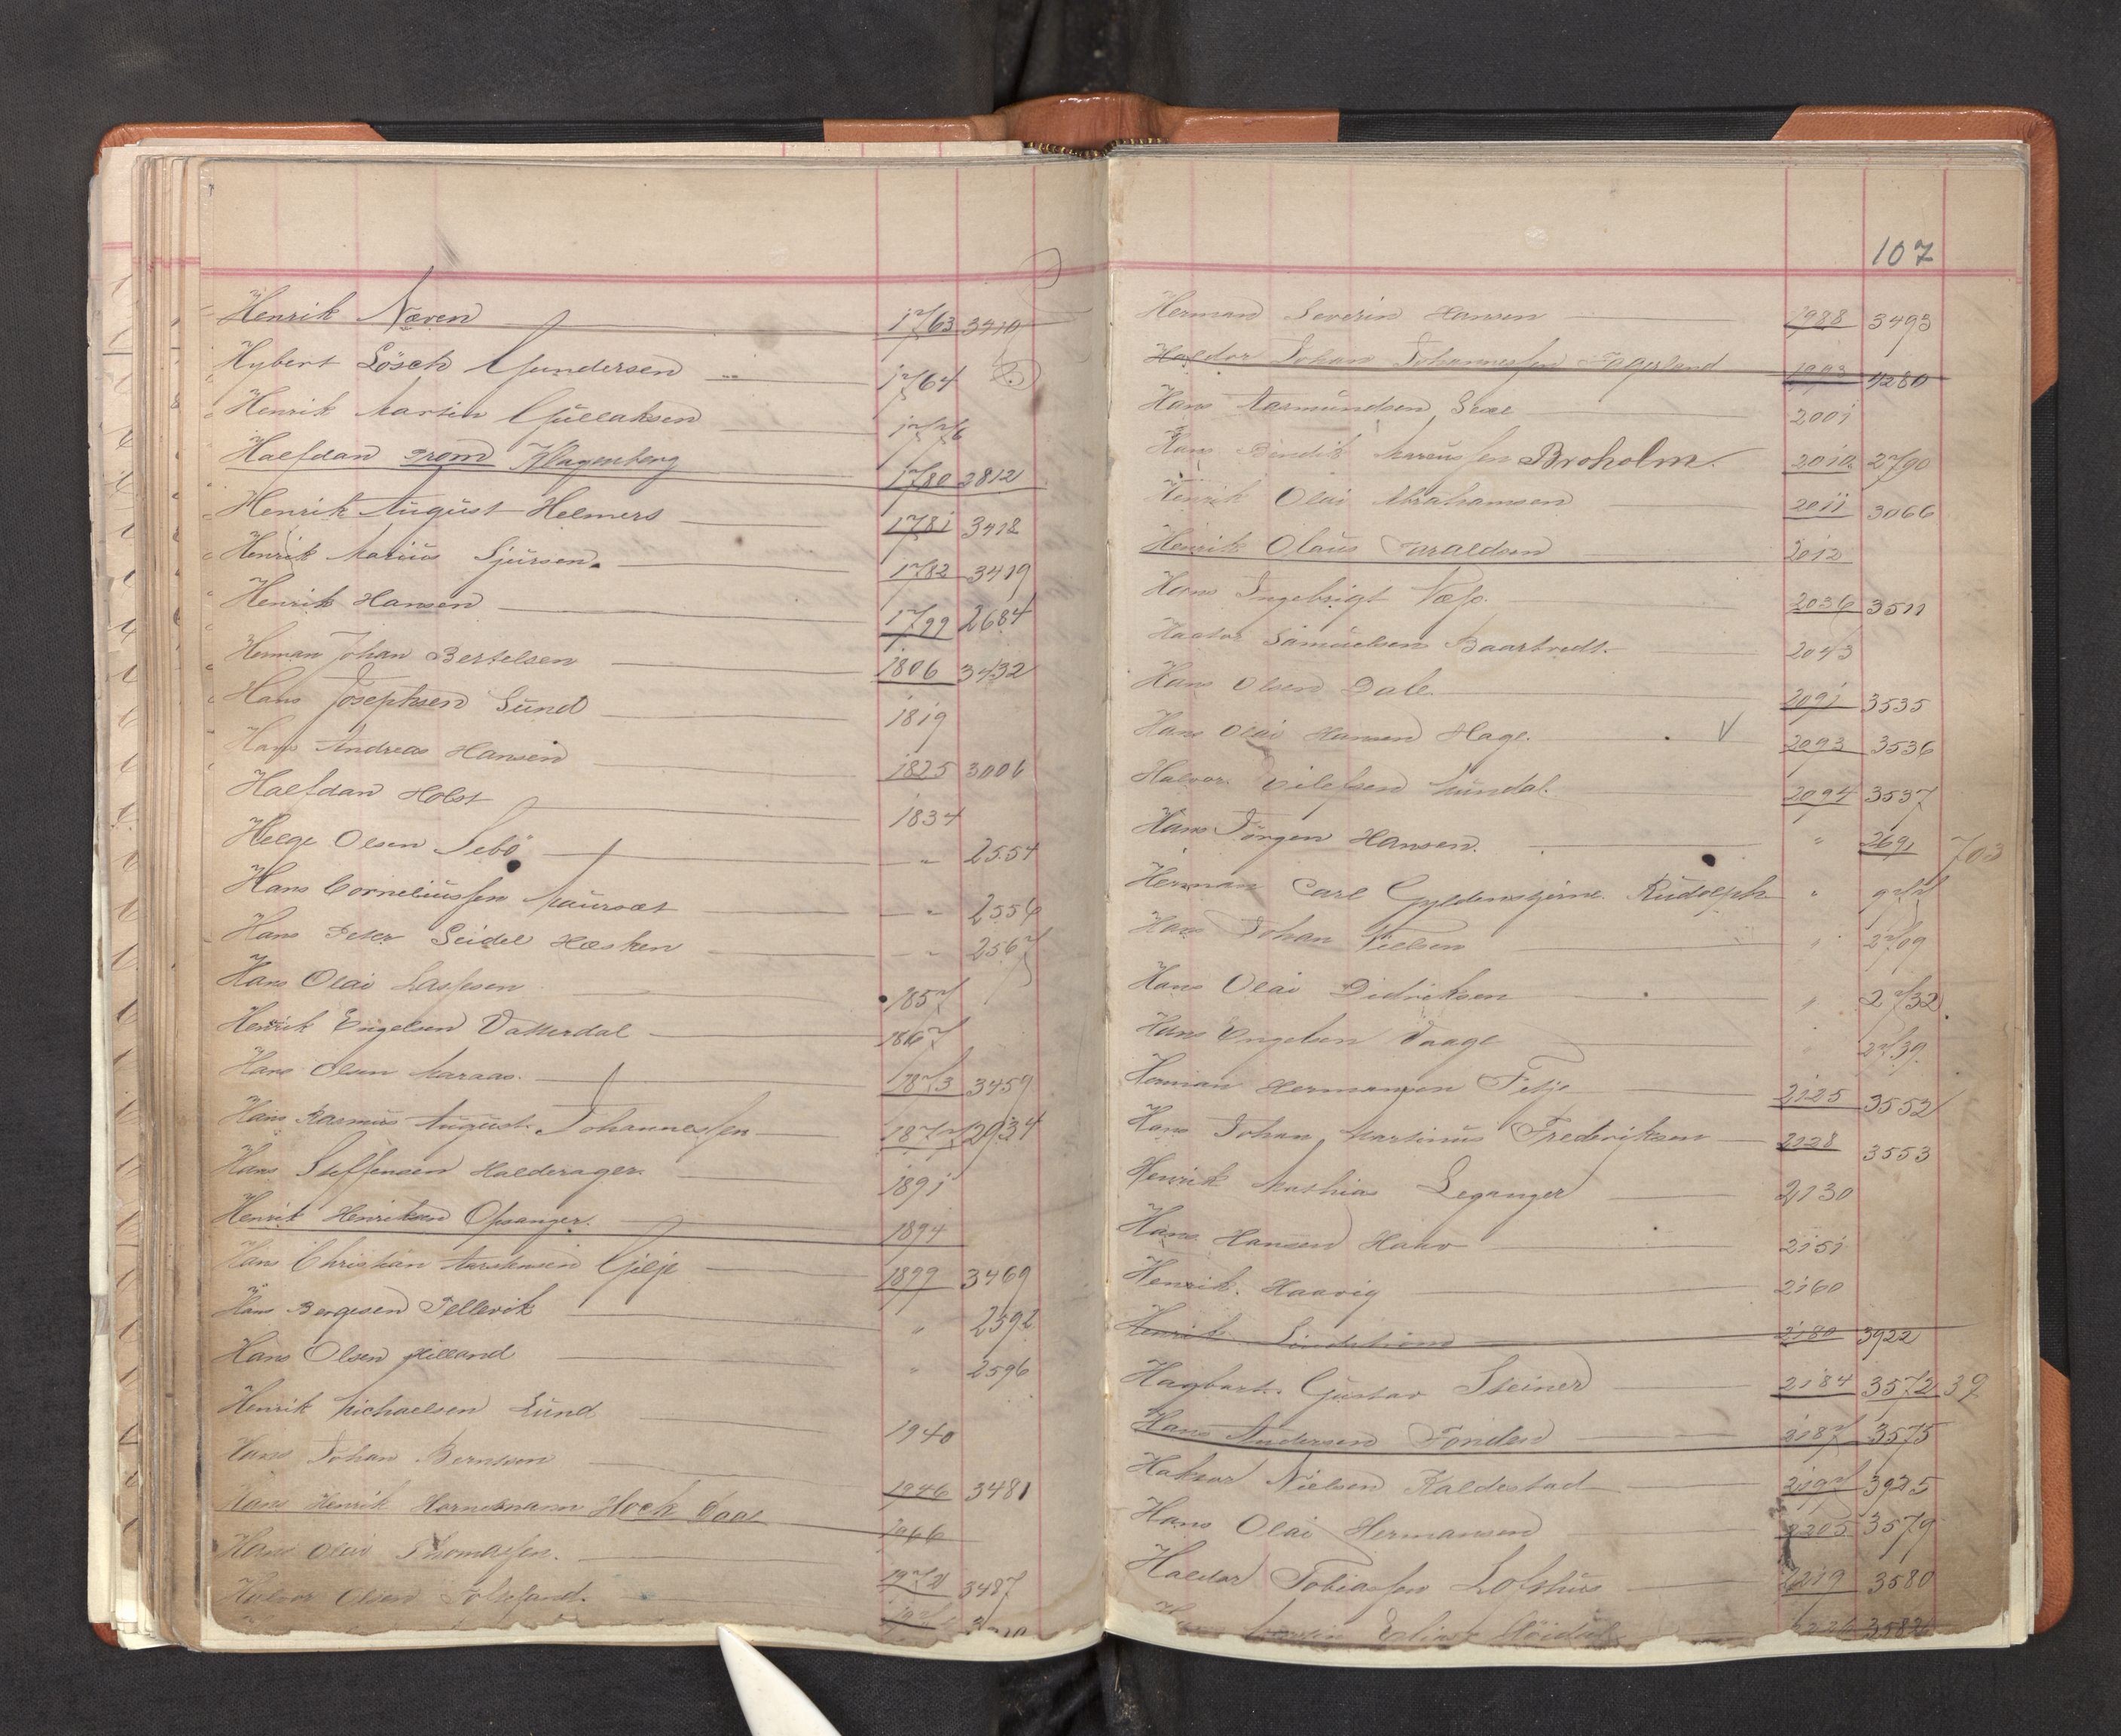 Henrik Næven 1763 3410
Hybert Lösch Gundersen 1764
Henrik Martin Gullaksen 1776
Halfdan Prom Klagenberg 1780 2812
Henrik August Helmers 1781 3418
Henrik Marius Sjursen. 1782 3419
Henrik Hansen 1799 2684
Herman Johan Bertelsen 1806 3432
Hans Josephsen Lund 1819
Hans Andreas Hansen 1825 3006
Halfdan Holst 1834
Helge Olsen Sebö " 2554
Hans Corneliussen Maursæt " 2556
Hans Peter Seidel Hæsken " 2567
Hans Olai Lassesen 1857
Henrik Engelsen Vatterdal 1867
Hans Olsen Maraas. 1873 3459
Hans Rasmus August Johannessen 1877 2934
Hans Steffensen Halderager. 1891
Henrik Henriksen Opsanger. 1894
Hans Christian Gilje 1899 3469
Hans Børgesen Tellevik " 2592
Hans Olsen Milland " 2596
Henrik Michaelsen Lund 1940
Hans Johan Berntsen 1946 3481
Hans Henrik Hornemann Hock Daae 1966
Hans Olai Thomassen. 3487
Halvor Olsen
107
Herman Severin Hansen 1988 3493
Haldor Johan Johannessen Fagerland 1993 4280
Hans Aasmundsen Sexe 2001
Hans Bendik Marcussen Broholm. 2010 2790
Henrik Olai Abrahamsen 2011 3066
Henrik Olaus Haraldsen 2012
Hans Ingebrigt Næss. 2036 3511
Samuelsen Baartvedt. 2043
Hans Olsen Dale. 2091 3535
Hans Olai Hansen Hage. V 2093 3536
Halvor Eilefsen Mundal. 2094 3537
Hans Jörgen Hansen. " 2691 703
Herman Carl Gyldenstjerne Rudolph " 977
Hans Johan Nielsen " 2709
Hans Olai Didriksen " 2732
Hans Engelsen Vaage 2739
Herman Hermansen Tetje 2125 3552
Hans Johan Martinus Frederiksen 2128 3553
Henrik Mathias Leganger 2130
Hans Hansen Haav 2151
Henrik Haavig 2160
Henrik Lindström 2180 3922
Hagbart Gustav Steiner 2184 3572 39
Hans Andersen Tonden 2187 3575
Haktor Nielsen Kaldestad 2197 3925
Hans Olai Hermansen 2205 3579
Haldor Tobiassen Lofthus 2219 3580